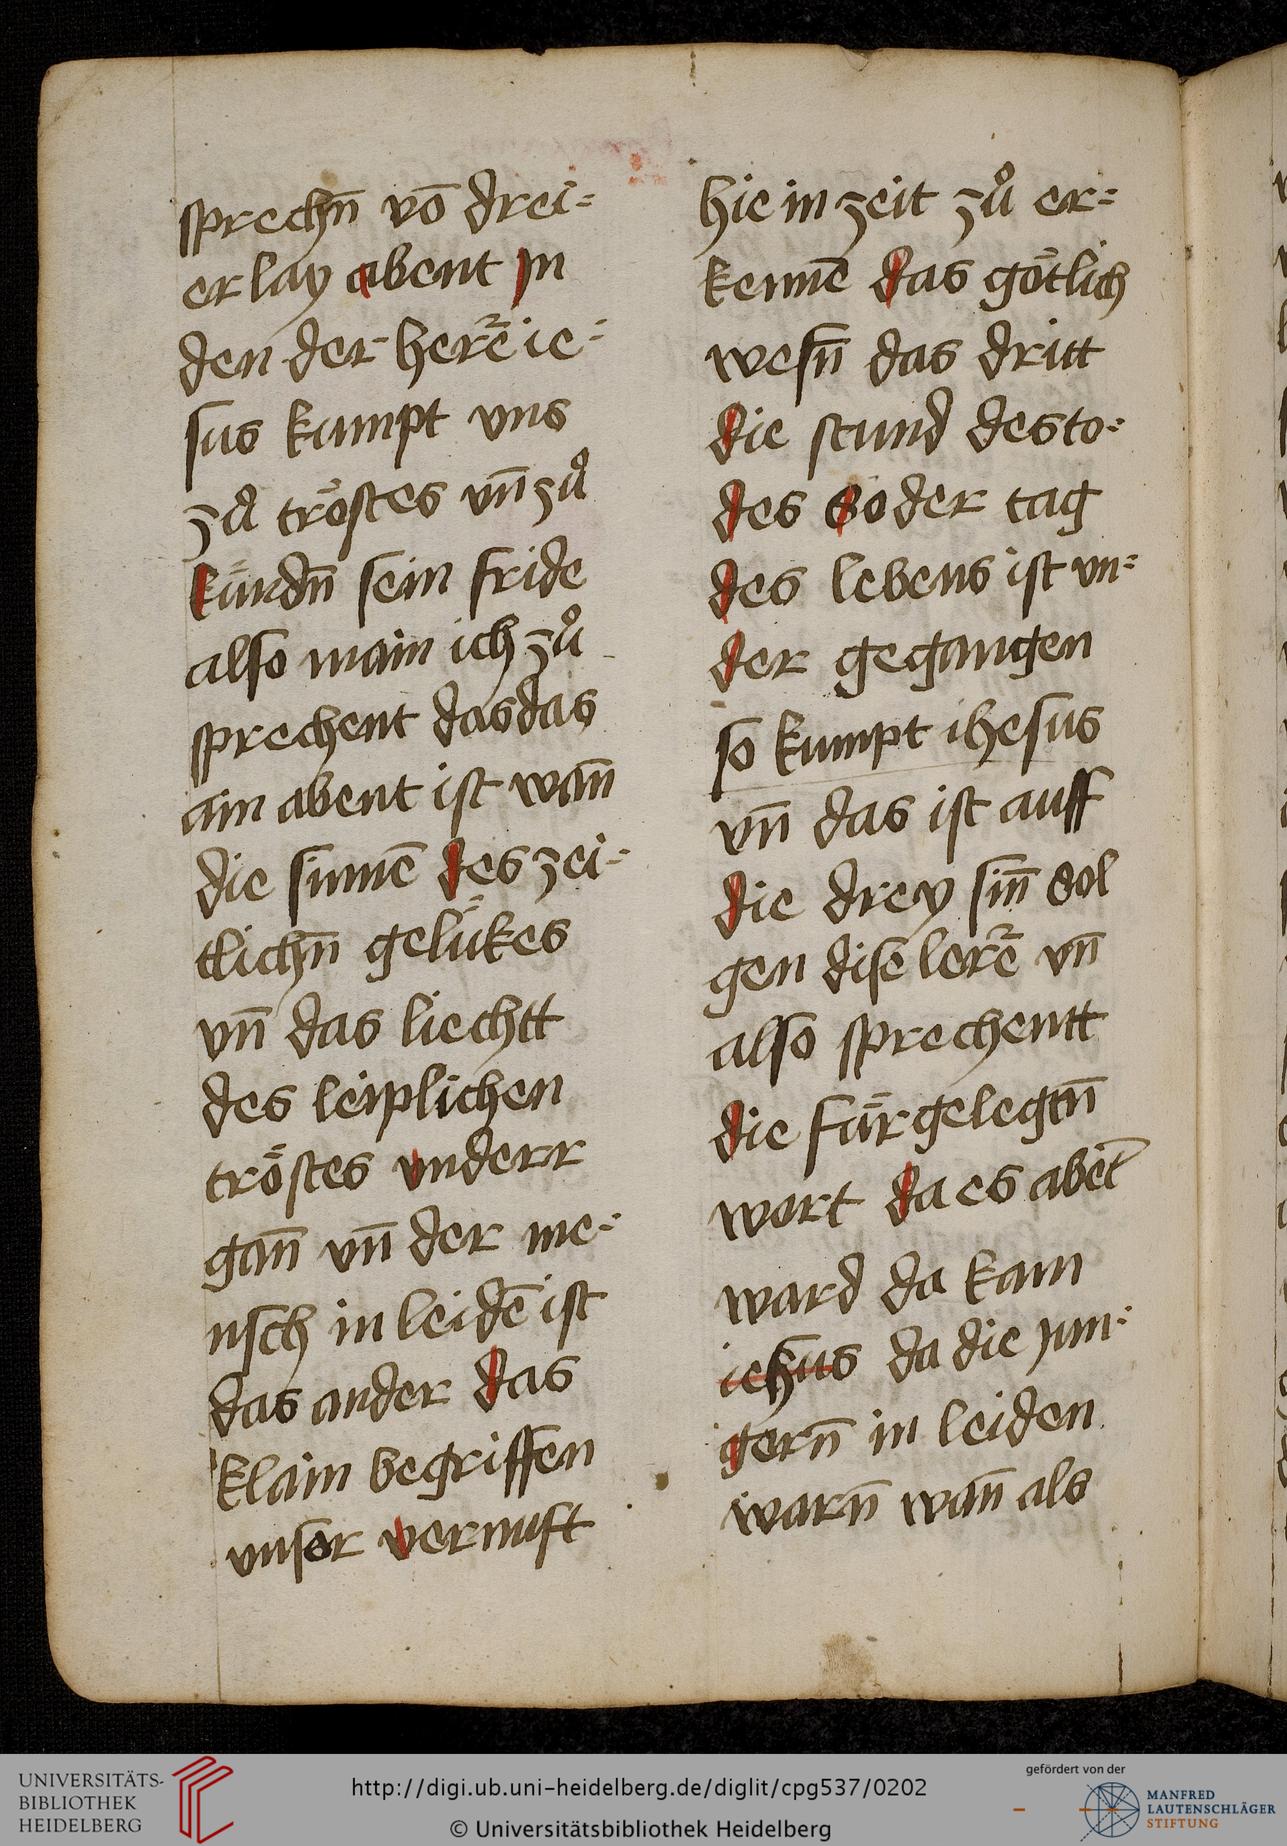 sprechn̄ vō drei=
erlay abent Jn
den der herr̄e ie=
sus kumpt vns
zů tröstes vn̄ zů
kürdn̄ sein fride
also main ich zů
sprechent das das
ain abent ist wan̄
die sinnē des zei=
tlichn̄ gelükes
vn̄ das liechtt
des leiplichen
tröstes vnderr
gan̄ vn̄ der me=
nsch in leidē ist
das ander das
klain begriffen
vnser vernuft
hie in zeit zů er=
kennē das götlich
wesn̄ das dritt
die stund des to=
des So der tag
des lebens ist vn=
der gegangen
so kumpt ihesus
vn̄ das ist auff
die drey sin̄ Sol
gen dise lerē vn̄
also sprechentt
die für gelegtn̄
wort da es abēt
ward da kam
iehus da die jun=
gern̄ in leiden
warn̄ wan̄ als
UNIVERSITÄTS-
BIBLIOTHEK
HEIDELBERG
http://digi.ub.uni-heidelberg.de/diglit/cpg537/0202
© Universitätsbibliothek Heidelberg
gefördert von der
MANFRED
LAUTENSCHLÄGER
STIFTUNG